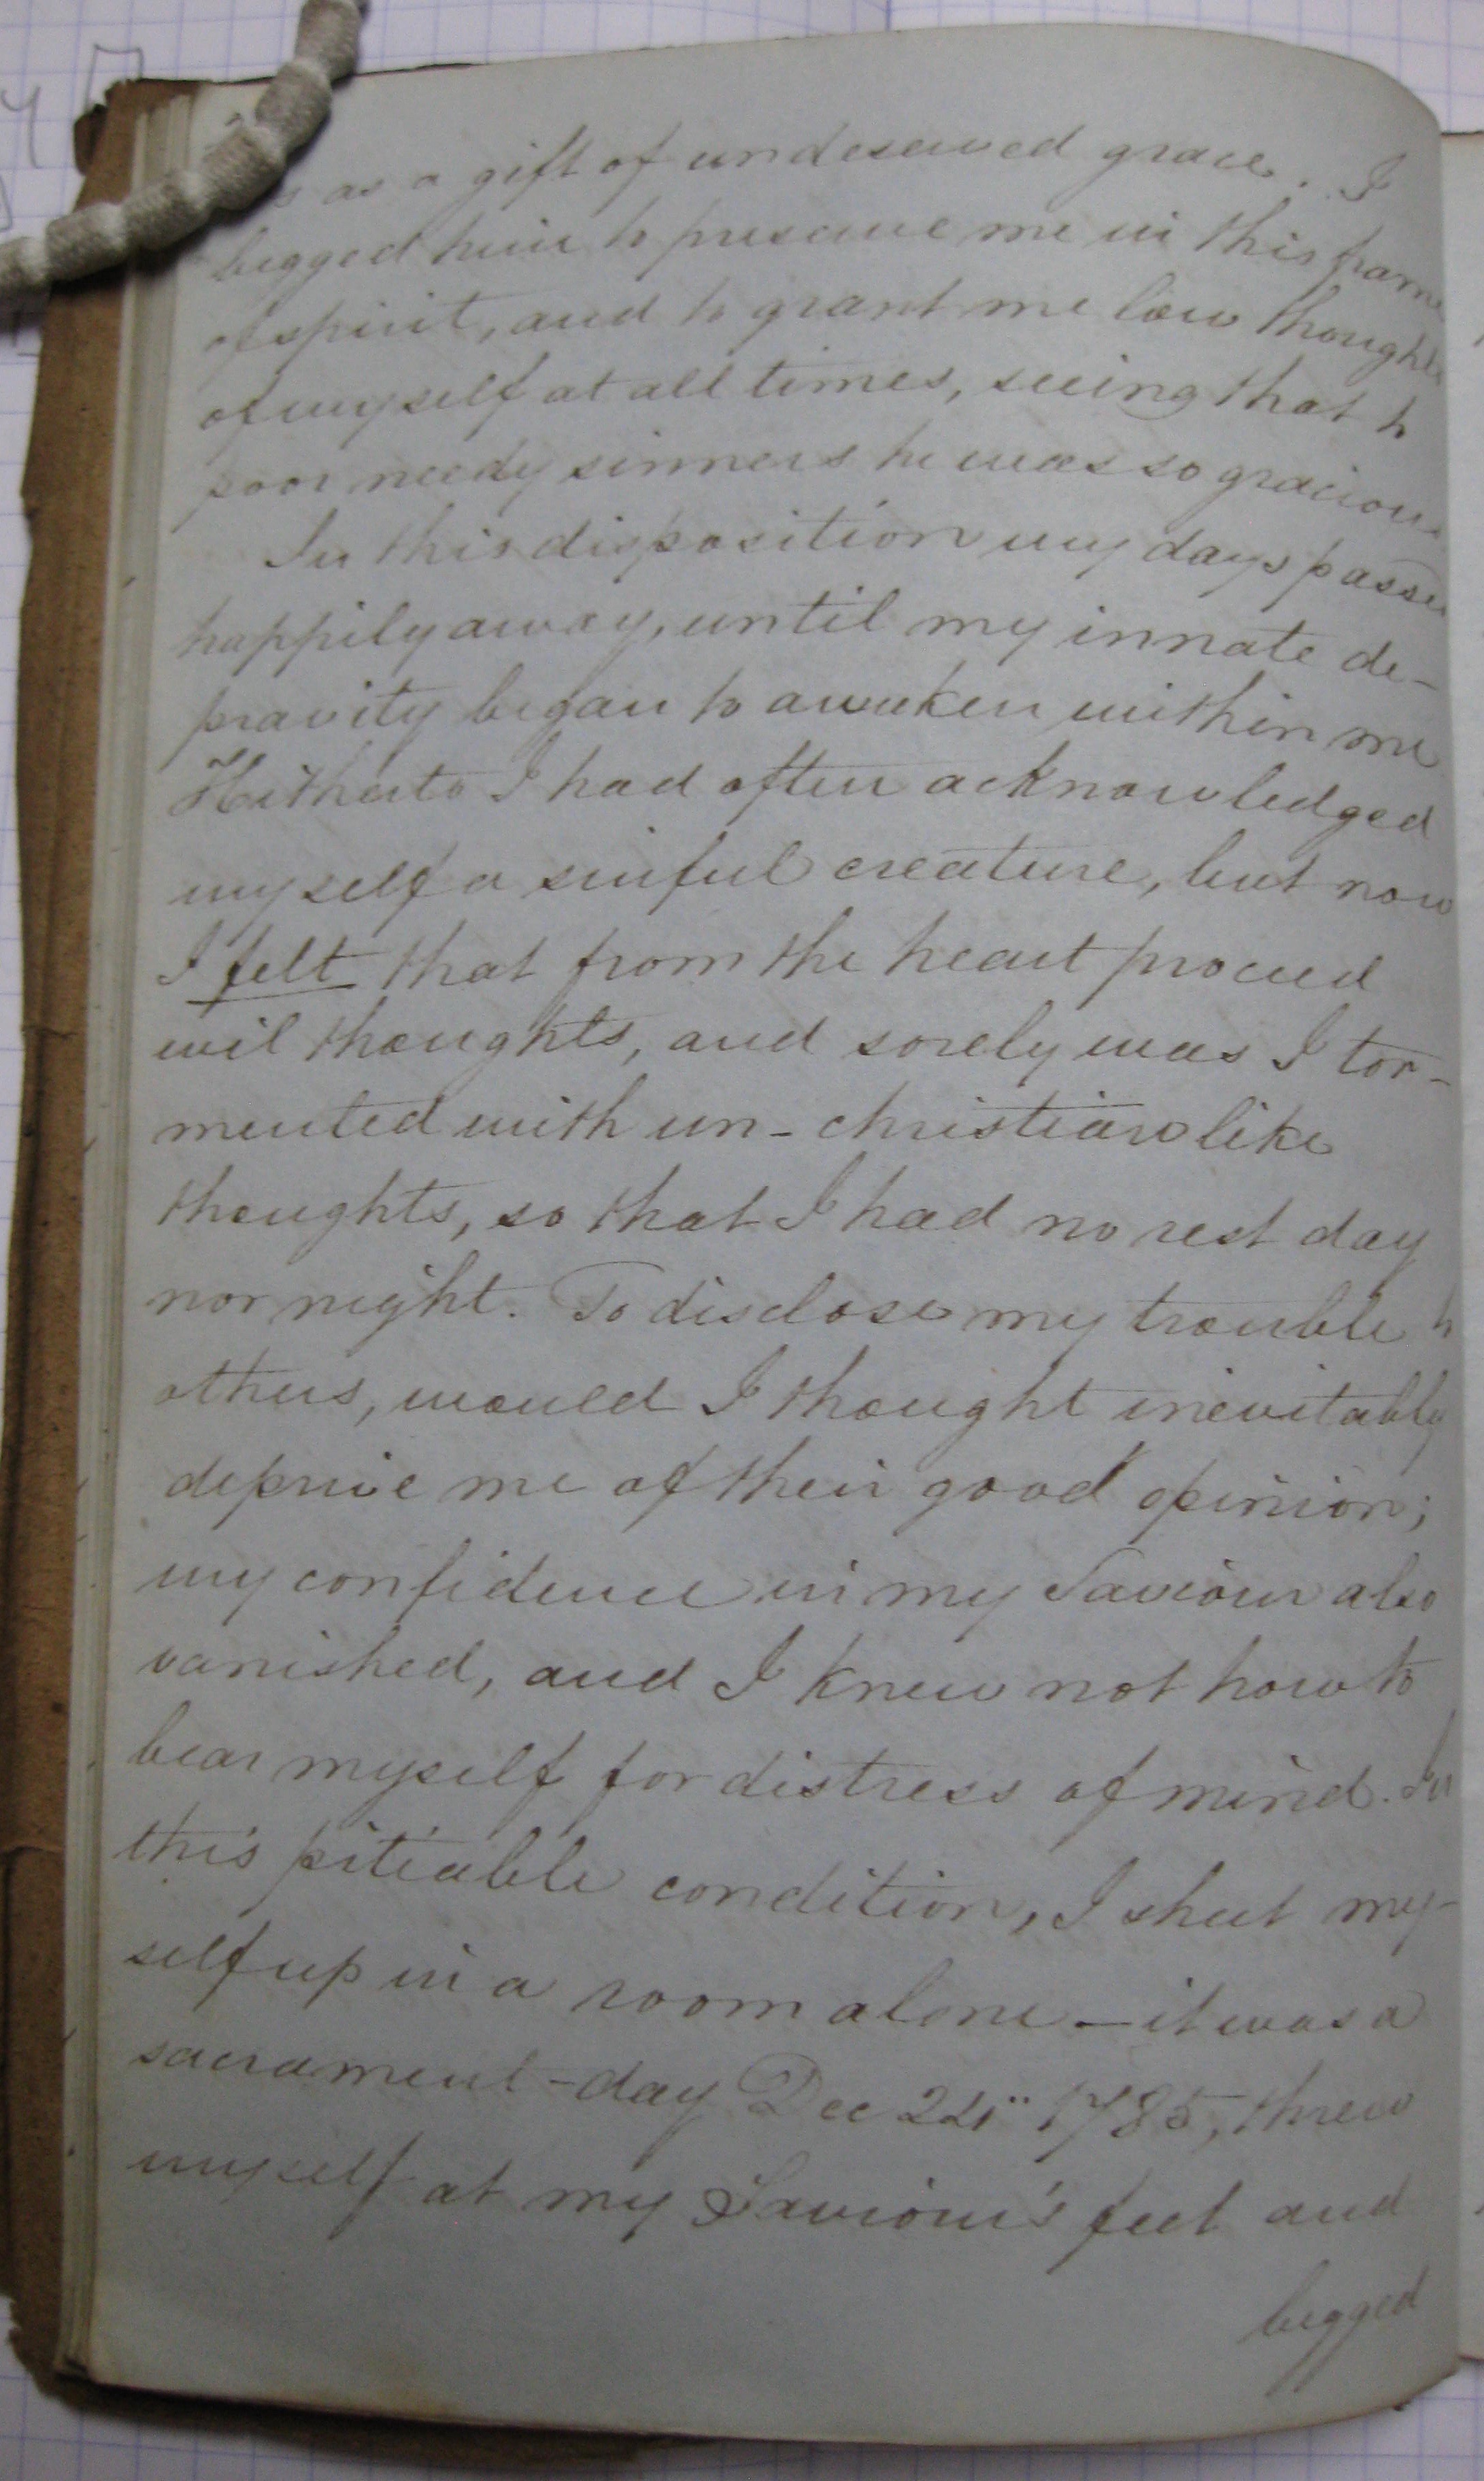 as a gift of undeserved grace. I
begged him to preserve me in this frame
of spirit, and to grant me low thoughts
of myself at all times, seeing that to
poor needy sinners he was so gracious
In this disposition my days passed
happily away, until my innate de-
pravity began to awaken within me
Hitherto I had often acknowledged
myself a sinful creature, but now
I felt that from the heart proceed
evil thoughts, and sorely was I tor-
mented with un-christian like
thoughts, so that I had no rest day
nor night. To disclose my trouble to
others, would I thought inevitably
deprive me of their good opinion;
my confidence in my Saviour also
vanished, and I knew not how to
bear myself for distress of mind. In
this pitiable condition, I shut my-
self up in a room alone - it was a
sacrament-day Dec 24" 1785, threw
myself at my Saviour's feet and
begged